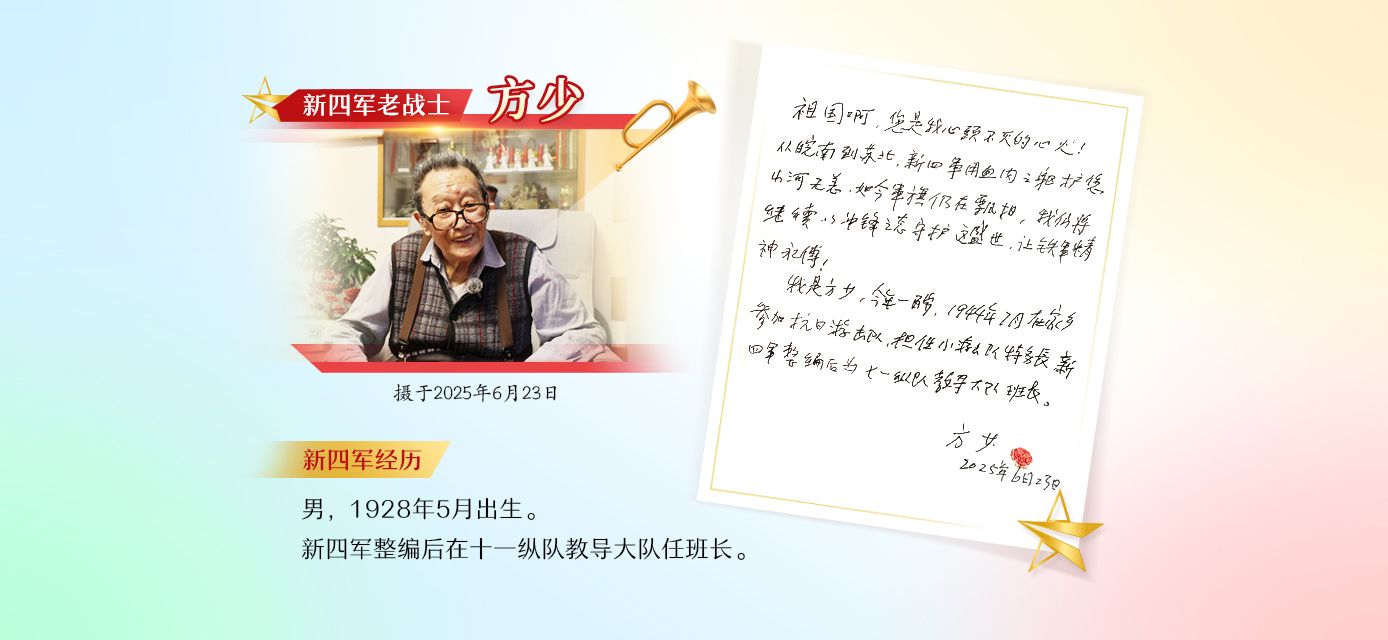 新四军老战士 方少
摄于2025年6月23日
新四军经历
男，1928年5月出生。
新四军整编后在十一纵队教导大队任班长。
祖国啊，您是我心头不灭的心火！
从皖南到苏北，新四军用血肉之躯护您
山河无恙，如今军旗仍在飘扬，我仍将
继续以冲锋之态守护这盛世，让铁军精
神永传！
我是方少，1944年7月在家乡
参加抗日游击队，担任小队队长 新
四军整编后为十一纵队教导大队班长。
方少
2025年6月23日